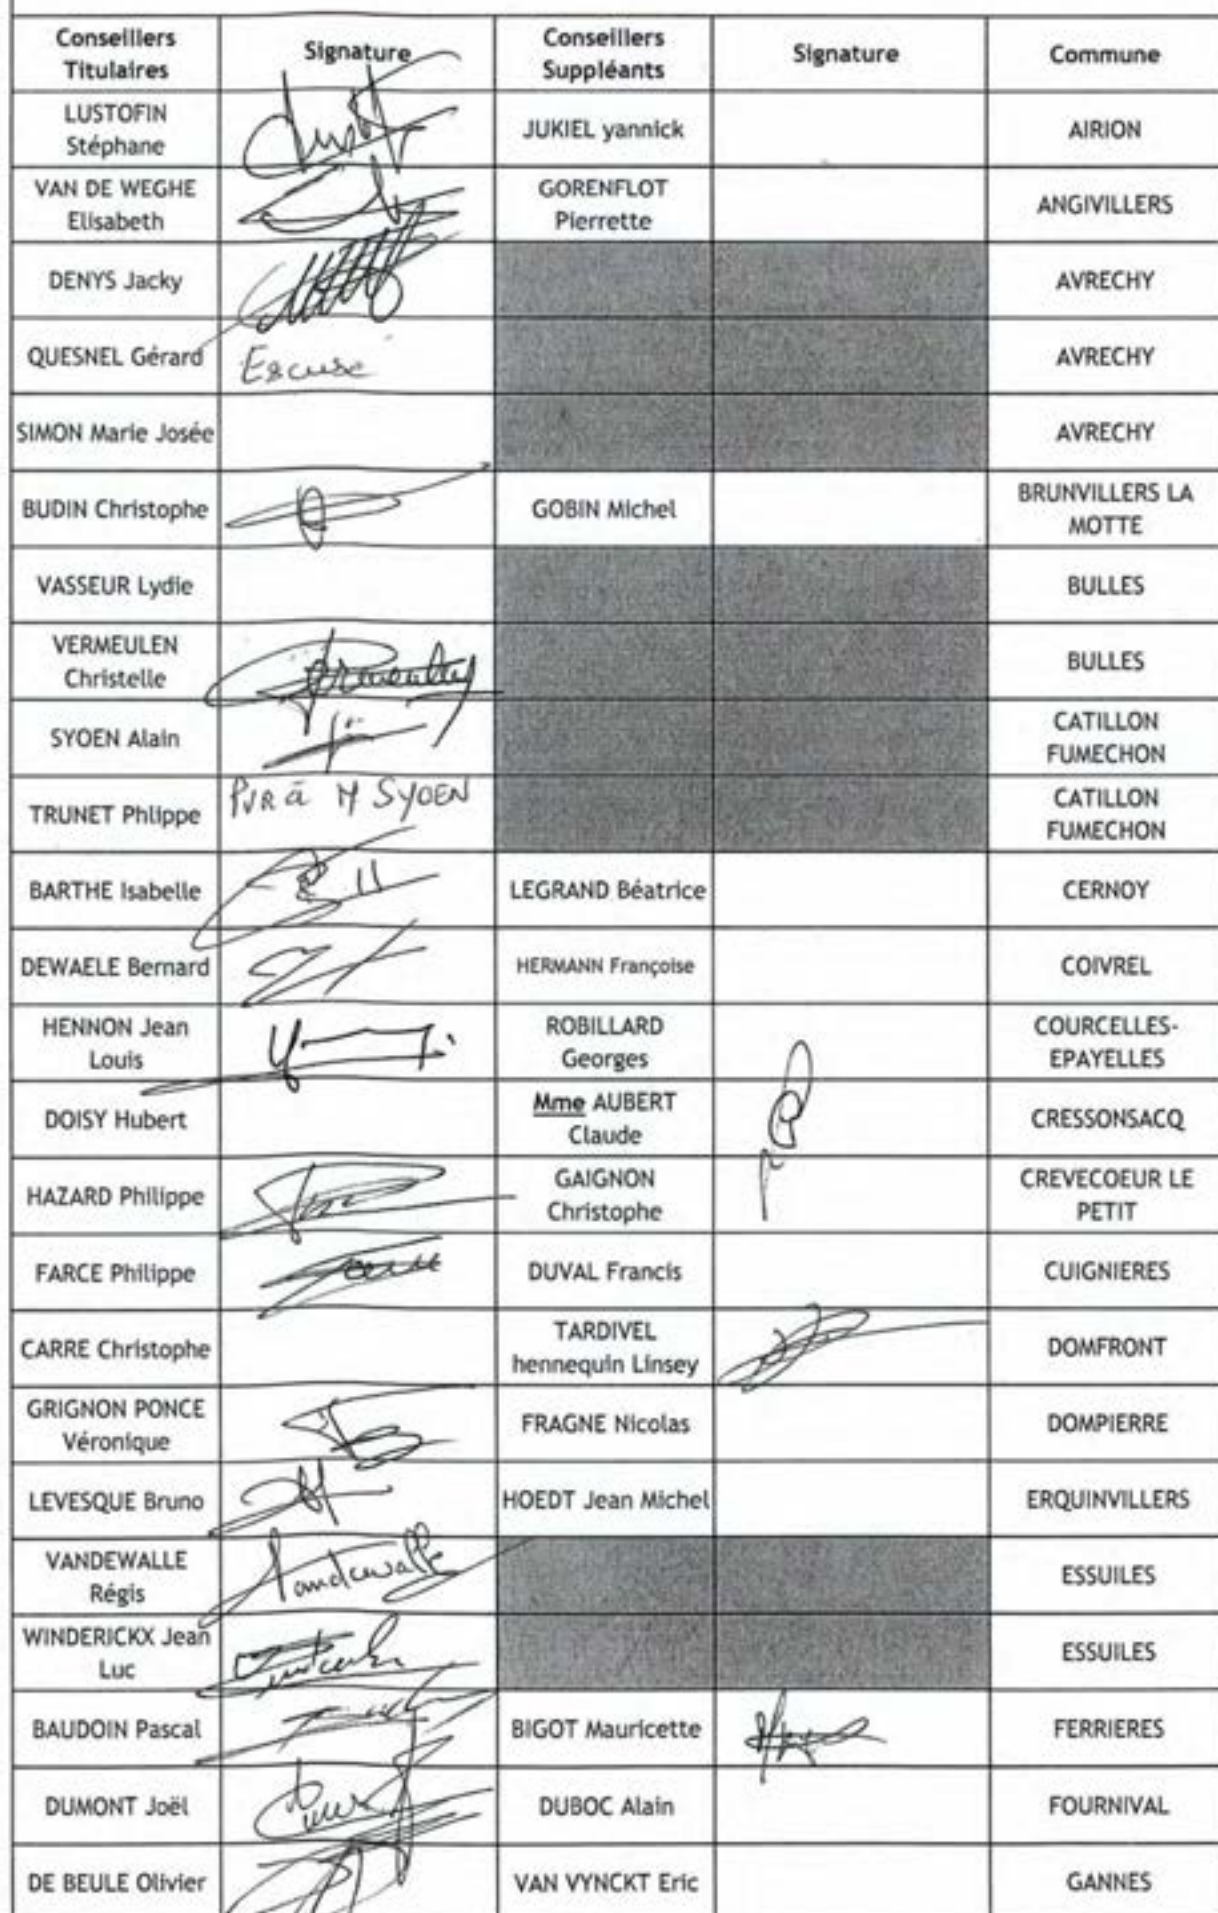 Conseillers Titulaires Signature Conseillers Suppléants Signature Commune
LUSTOFIN Stéphane JUKIEL yannick AIRION
VAN DE WEGHE Elisabeth GORENFLOT Pierrette ANGIVILLERS
DENYS Jacky AVRECHY
QUESNEL Gérard Excusé AVRECHY
SIMON Marie Josée AVRECHY
BUDIN Christophe GOBIN Michel BRUNVILLERS LA MOTTE
VASSEUR Lydie BULLES
VERMEULEN Christelle BULLES
SYOEN Alain CATILLON FUMECHON
TRUNET Phlippe PVR à M SYOEN CATILLON FUMECHON
BARTHE Isabelle LEGRAND Béatrice CERNOY
DEWAELE Bernard HERMANN Françoise COIVREL
HENNON Jean Louis ROBILLARD Georges COURCELLES-EPAYELLES
DOISY Hubert Mme AUBERT Claude CRESSONSACQ
HAZARD Philippe GAIGNON Christophe CREVECOEUR LE PETIT
FARCE Philippe DUVAL Francis CUIGNIERES
CARRE Christophe TARDIVEL hennequin Linsey DOMFRONT
GRIGNON PONCE Véronique FRAGNE Nicolas DOMPIERRE
LEVESQUE Bruno HOEDT Jean Michel ERQUINVILLERS
VANDEWALLE Régis Vandewalle ESSUILES
WINDERICKX Jean Luc ESSUILES
BAUDOIN Pascal BIGOT Mauricette FERRIERES
DUMONT Joël DUBOC Alain FOURNIVAL
DE BEULE Olivier VAN VYNCKT Eric GANNES